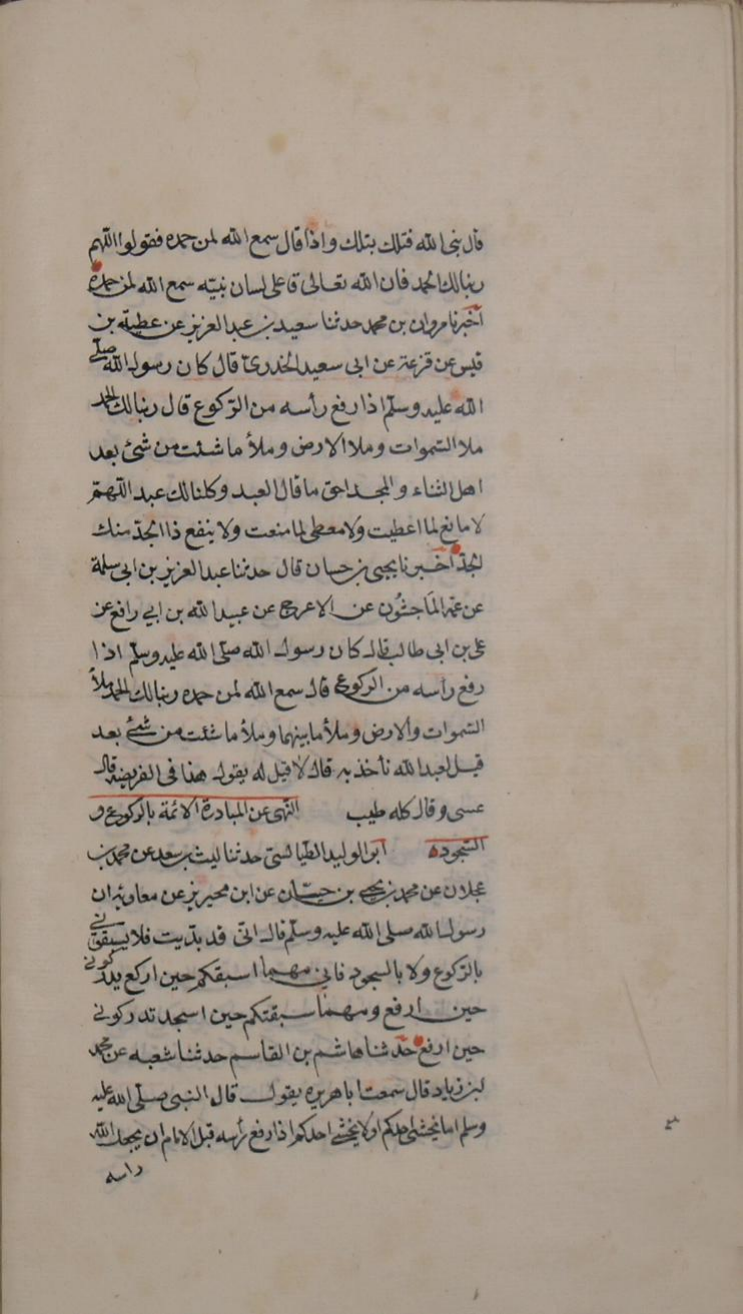 قال نبى الله فتلك بتلك واذا قال سمع الله لمن حمده فقولوا اللهم
ربنا لك الحمد فان الله تعالى قا على لسان نبيّه سمع الله لمن حمده
اخبرنا مروان بن محمد حدثنا سعيد بن عبد العزيز عن عطية بن
قيس عن قزعة عن ابى سعيد الخدرى قال كان رسول الله صلى
الله عليه وسلم اذا رفع رأسه من الركوع قال ربنا لك الحمد
ملا السموات وملا الارض وملأ ما شئت من شئ بعد
اهل الثناء والمجد احق ما قال العبد وكلنا لك عبد اللهم
لا مانع لما اعطيت ولا معطى لما منعت ولا ينفع ذا الجد منك
الجد اخبرنا يحيى بن حسان قال حدثنا عبد العزيز بن ابى سلمة
عن عمه الماجشون عن الاعرج عن عبيد الله بن ابي رافع عن
على بن ابى طالب قال كان رسول الله صلى الله عليه وسلم اذا
رفع رأسه من الركوع قال سمع الله لمن حمده ربنا لك الحمد ملأ
السموات والارض وملأ ما بينهما وملأ ما شئت من شئ بعد
قيل لعبد الله تأخذ به قال لا قيل له يقول هذا فى الفريضة قال
عسى وقال كله طيب النهى عن المبادرة الائمة بالركوع و
السجوده ابو الوليد الطيالسى حدثنا ليث بن سعد عن محمد بن
عجلان عن محمد بن يحيى بن حبّان عن ابن محيريز عن معاوية ان
رسول الله صلى الله عليه وسلم قال انى قد بدّيت فلا يسبقونى
بالركوع ولا بالسجود فانى مهما اسبقكم حين اركع يدركونى
حين ارفع ومهما سبقتكم حين اسجد تدركونى
حين ارفع حدثنا هاشم بن القاسم حدثنا شعبه عن محمد
ابن زياد قال سمعت ابا هريره يقول قال النبى صلى الله عليه
وسلم اما يخشى احدكم او لا يخشى احدكم اذا رفع رأسه قبل الامام ان يجعل الله
راسه